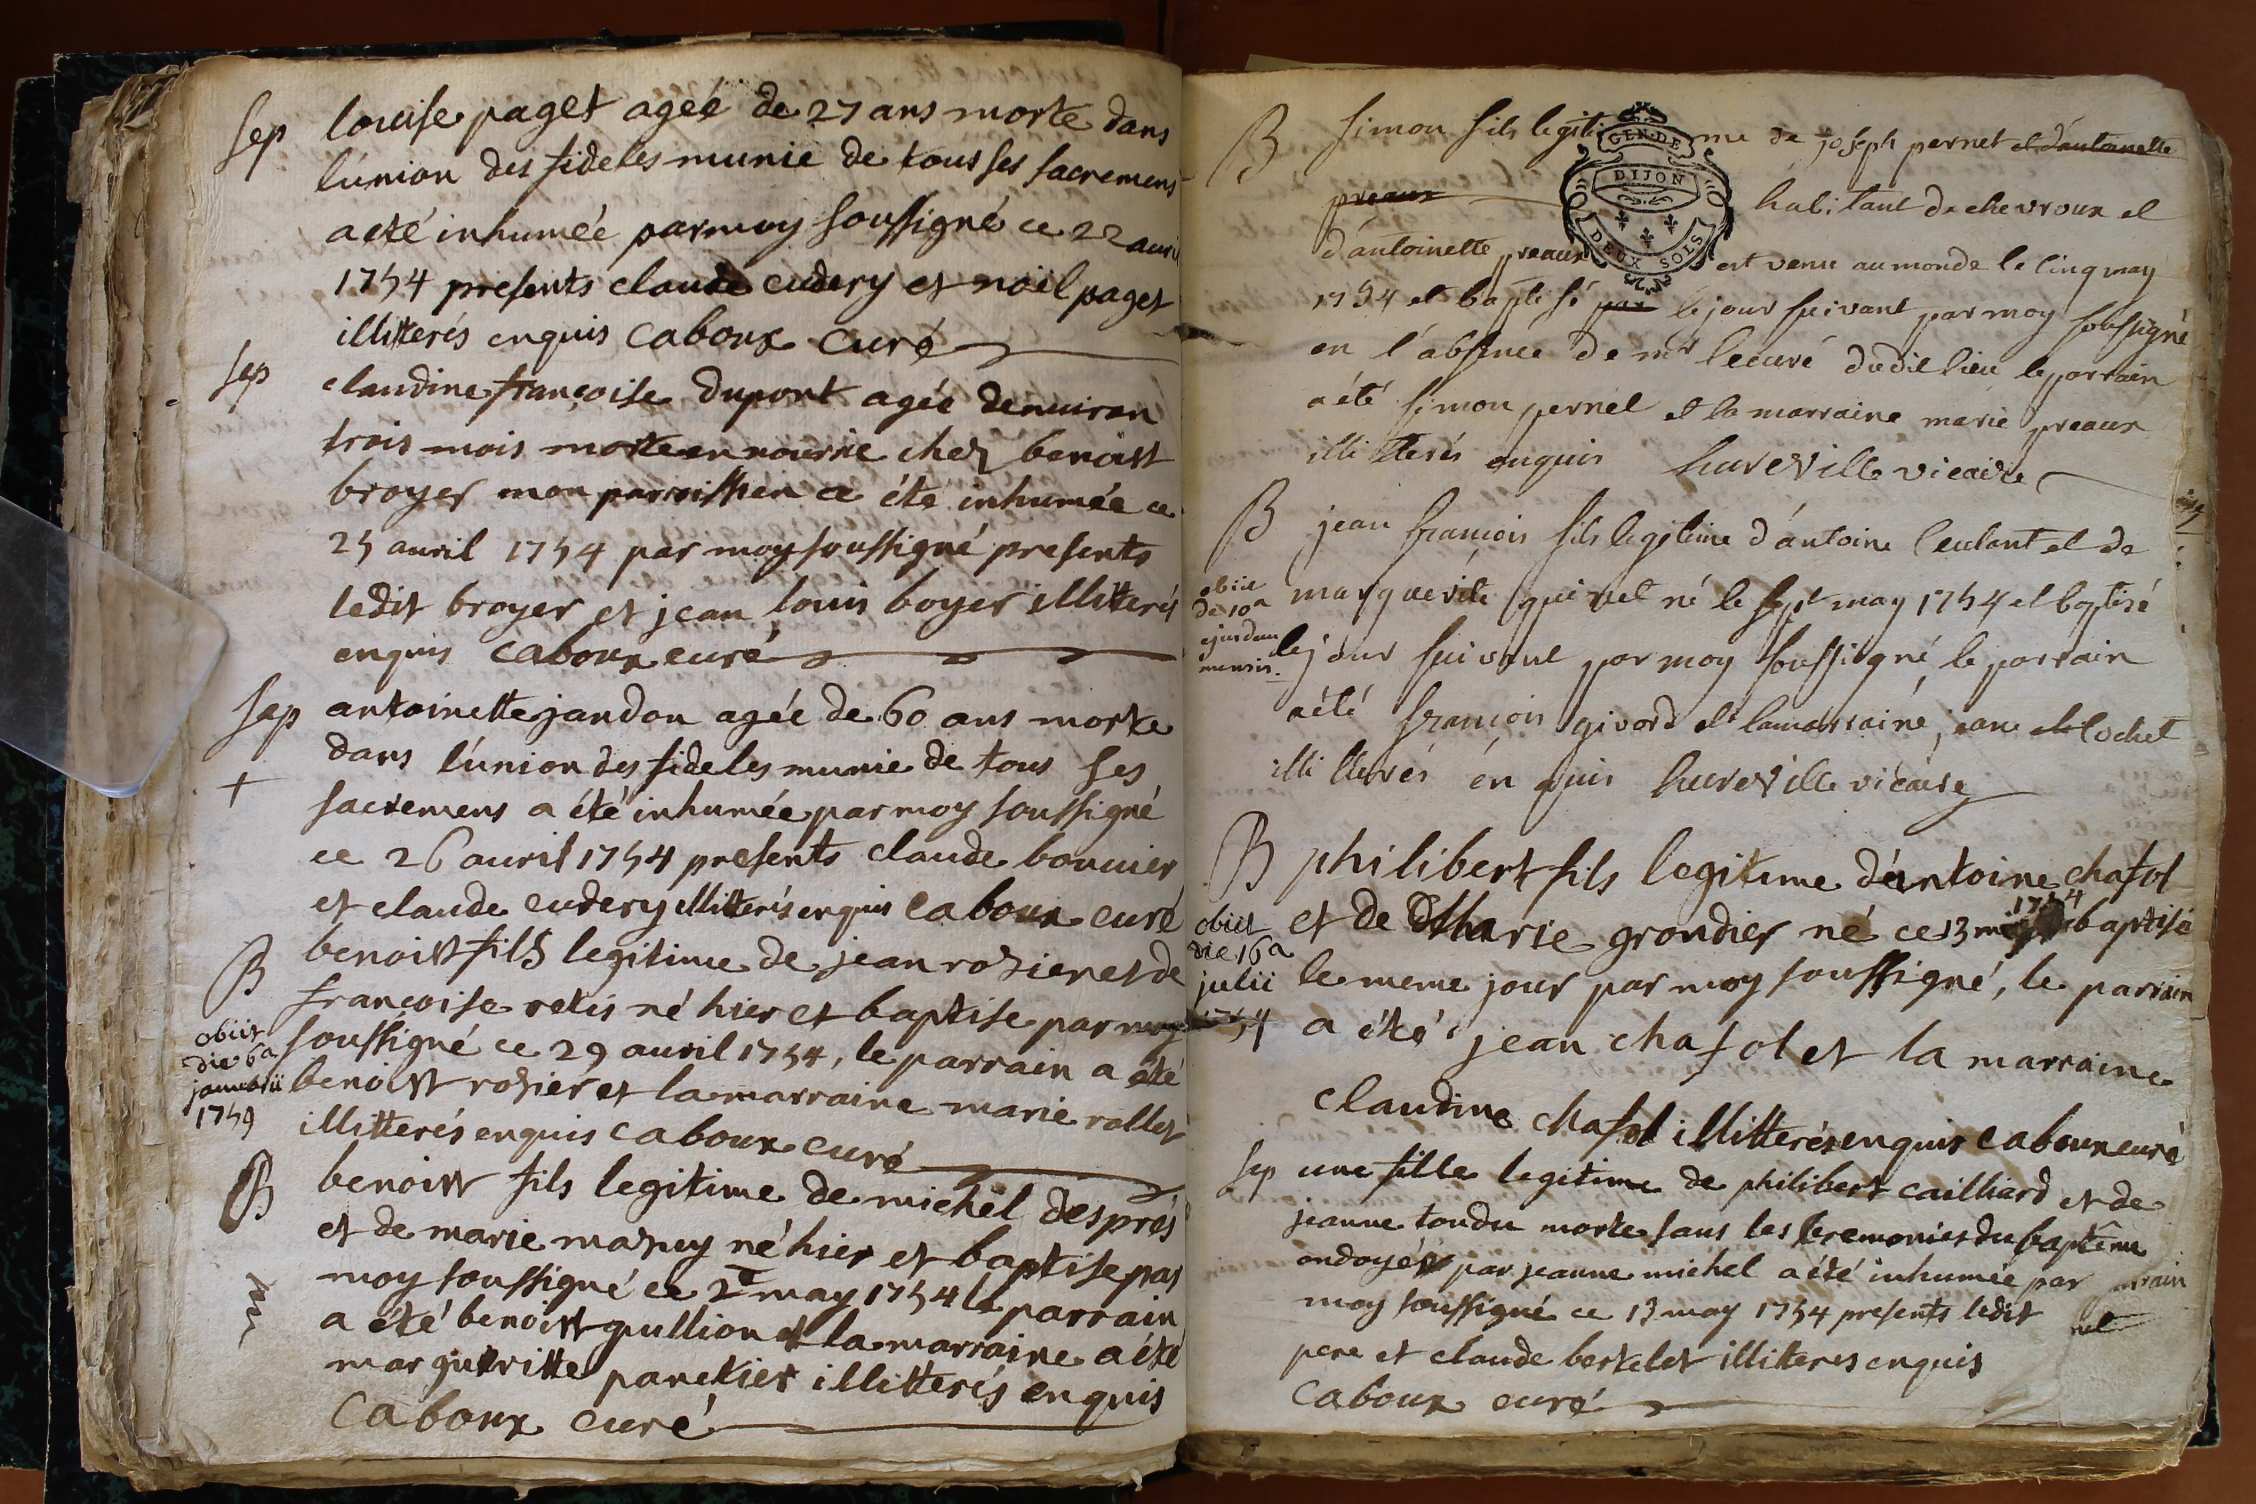 sep louise paget ageé de 27 ans morte dans
l'union des fideles munie de tous ses sacremens
a eté inhumeé par moy soussigné ce 22 auril
1754 presents claude cudery et noïl paget
illitterés enquis caboux curé
sep claudine françoise dupont agée denuiron
trois mois morte en nourrie chez benoist
broyer mon parroissien a éte inhumée ce
25 auril 1754 par moy soussigné presents
ledit broyer et jean louis boyer illitterés
enquis caboux curé
sep antoinette jandon agée de 60 ans morte
dans l'union des fideles munie de tous ses
sacremens a été inhumée par moy soussigné
ce 26 auril 1754 presents claude bouuier
et claude cudery illitterés enquis caboux curé
B benoist fils legitime de jean rozier et de
françoise retis né hier et baptise par moy
soussigné ce 29 auril 1754, le parrain a été
benoist rozier et la marraine marie rollet
illitterés enquis caboux curé
obiit
die 6a
januarii
1759
B benoist fils legitime de michel després
et de marie mazuy né hier et baptise par
moy soussigné ce 2e may 1754 le parrain
a été benoist gullion et la marraine a été
margueritte panetier illitterés enquis
caboux curé
B simon fils legiti me de joseph pernet et d'antoinette
preaux habitant de chevroux et
d'antoinette preaux est venu au monde le cinq may
1754 et baptisé par le jour suivant par moy soussigné
en l'absence de mr le curé dudit lieu le parrain
a été simon pernet et la marraine marie preaux
illitterés enquis hureville vicaire
GEN. DE
DIJON
DEUX SOLS
B jean françois fils legitime d'antoine leulant et de
marguerite quivet né le sept may 1754 et baptisé
le jour suivant par moy soussigné, le parrain
a été françois givord et la marraine, jeane cochet
illitterés en quis hureville vicaire
obiit
die 10a
ejusdem
mensis.
B philibert fils legitime d'antoine chasol
et de Marie grondier né ce 13 may 1754 baptisé
le meme jour par moy soussigné, le parrain
a été jean chasol et la marraine
claudine chasol illitterés enquis caboux curé
obiit
die 16a
julii
1754
sep une fille legitime de philibert cailliard et de
jeanne tondu morte sans les ceremonies du baptême
ondoyée par jeanne michel a été inhumée par
moy soussigné ce 13 may 1754 presents ledit
pere et claude bertelet illitteres enquis
caboux curé